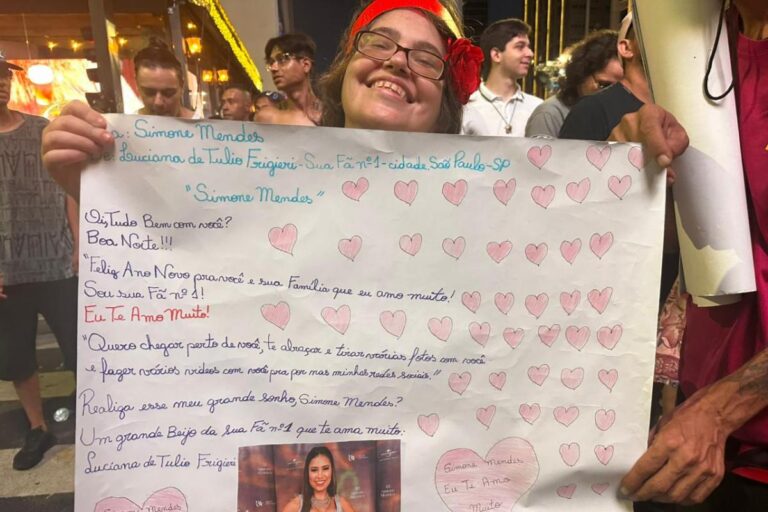 : Simone Mendes
Luciana de Tulio Frigieri - Sua Fã nº 1 - cidade São Paulo - SP
"Simone Mendes"
Oi, Tudo Bem com você?
Boa Noite!!!
"Feliz Ano Novo pra você e sua Família que eu amo muito!
Sou sua Fã nº 1!
Eu Te Amo Muito!
"Quero chegar perto de você, te abraçar e tirar várias fotos com você
e fazer vários vídeos com você pra por nas minhas redes sociais."
Realiza esse meu grande sonho, Simone Mendes?
Um grande Beijo da sua Fã nº 1 que te ama muito:
Luciana de Tulio Frigieri
Simone Mendes
Eu Te Amo
Muito